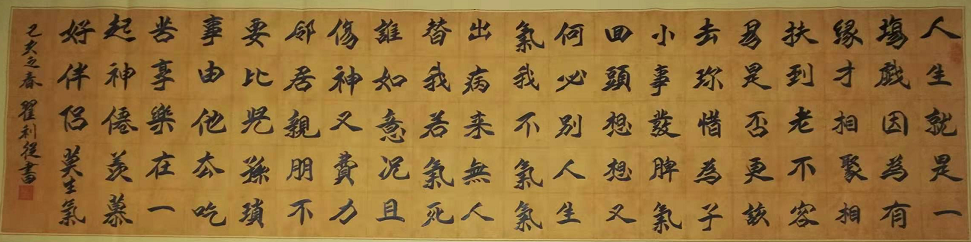 人生就是一
塲戲因為有
緣才相聚相
扶到老不容
易是否更該
去珎惜為子
小事發脾氣
回頭想想又
何必別人生
氣我不氣氣
出病来無人
替我若氣死
誰如意况且
傷神又費力
邻居親朋不
要比兒孫瑣
事由他去吃
苦享樂在一
起神僊羨慕
好伴侶莫生氣
己亥之春 翟利從書